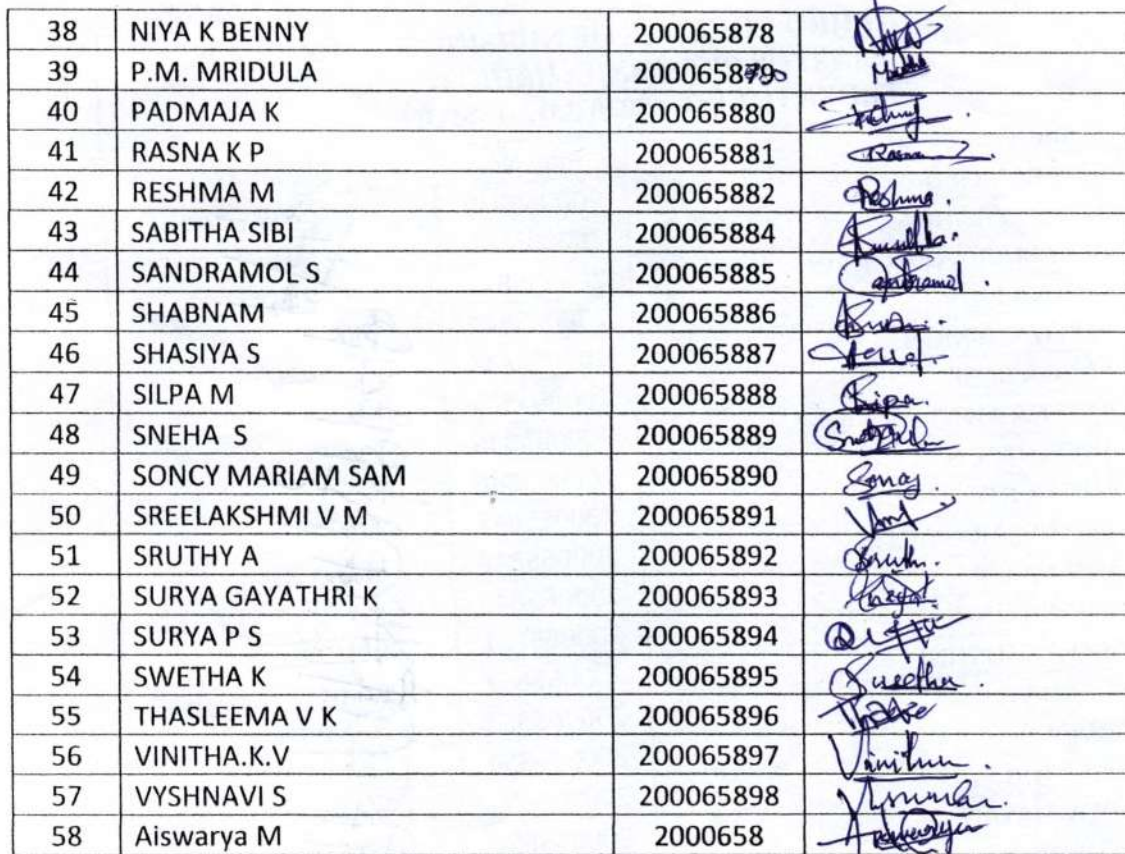 38 NIYA K BENNY 200065878
39 P.M. MRIDULA 200065879
40 PADMAJA K 200065880
41 RASNA K P 200065881 Rasna
42 RESHMA M 200065882 Reshma.
43 SABITHA SIBI 200065884
44 SANDRAMOL S 200065885 Sandramol.
45 SHABNAM 200065886
46 SHASIYA S 200065887
47 SILPA M 200065888
48 SNEHA S 200065889
49 SONCY MARIAM SAM 200065890 Soncy.
50 SREELAKSHMI V M 200065891
51 SRUTHY A 200065892
52 SURYA GAYATHRI K 200065893
53 SURYA P S 200065894
54 SWETHA K 200065895 Swetha
55 THASLEEMA V K 200065896
56 VINITHA.K.V 200065897 Vinitha.
57 VYSHNAVI S 200065898
58 Aiswarya M 2000658 Aiswarya